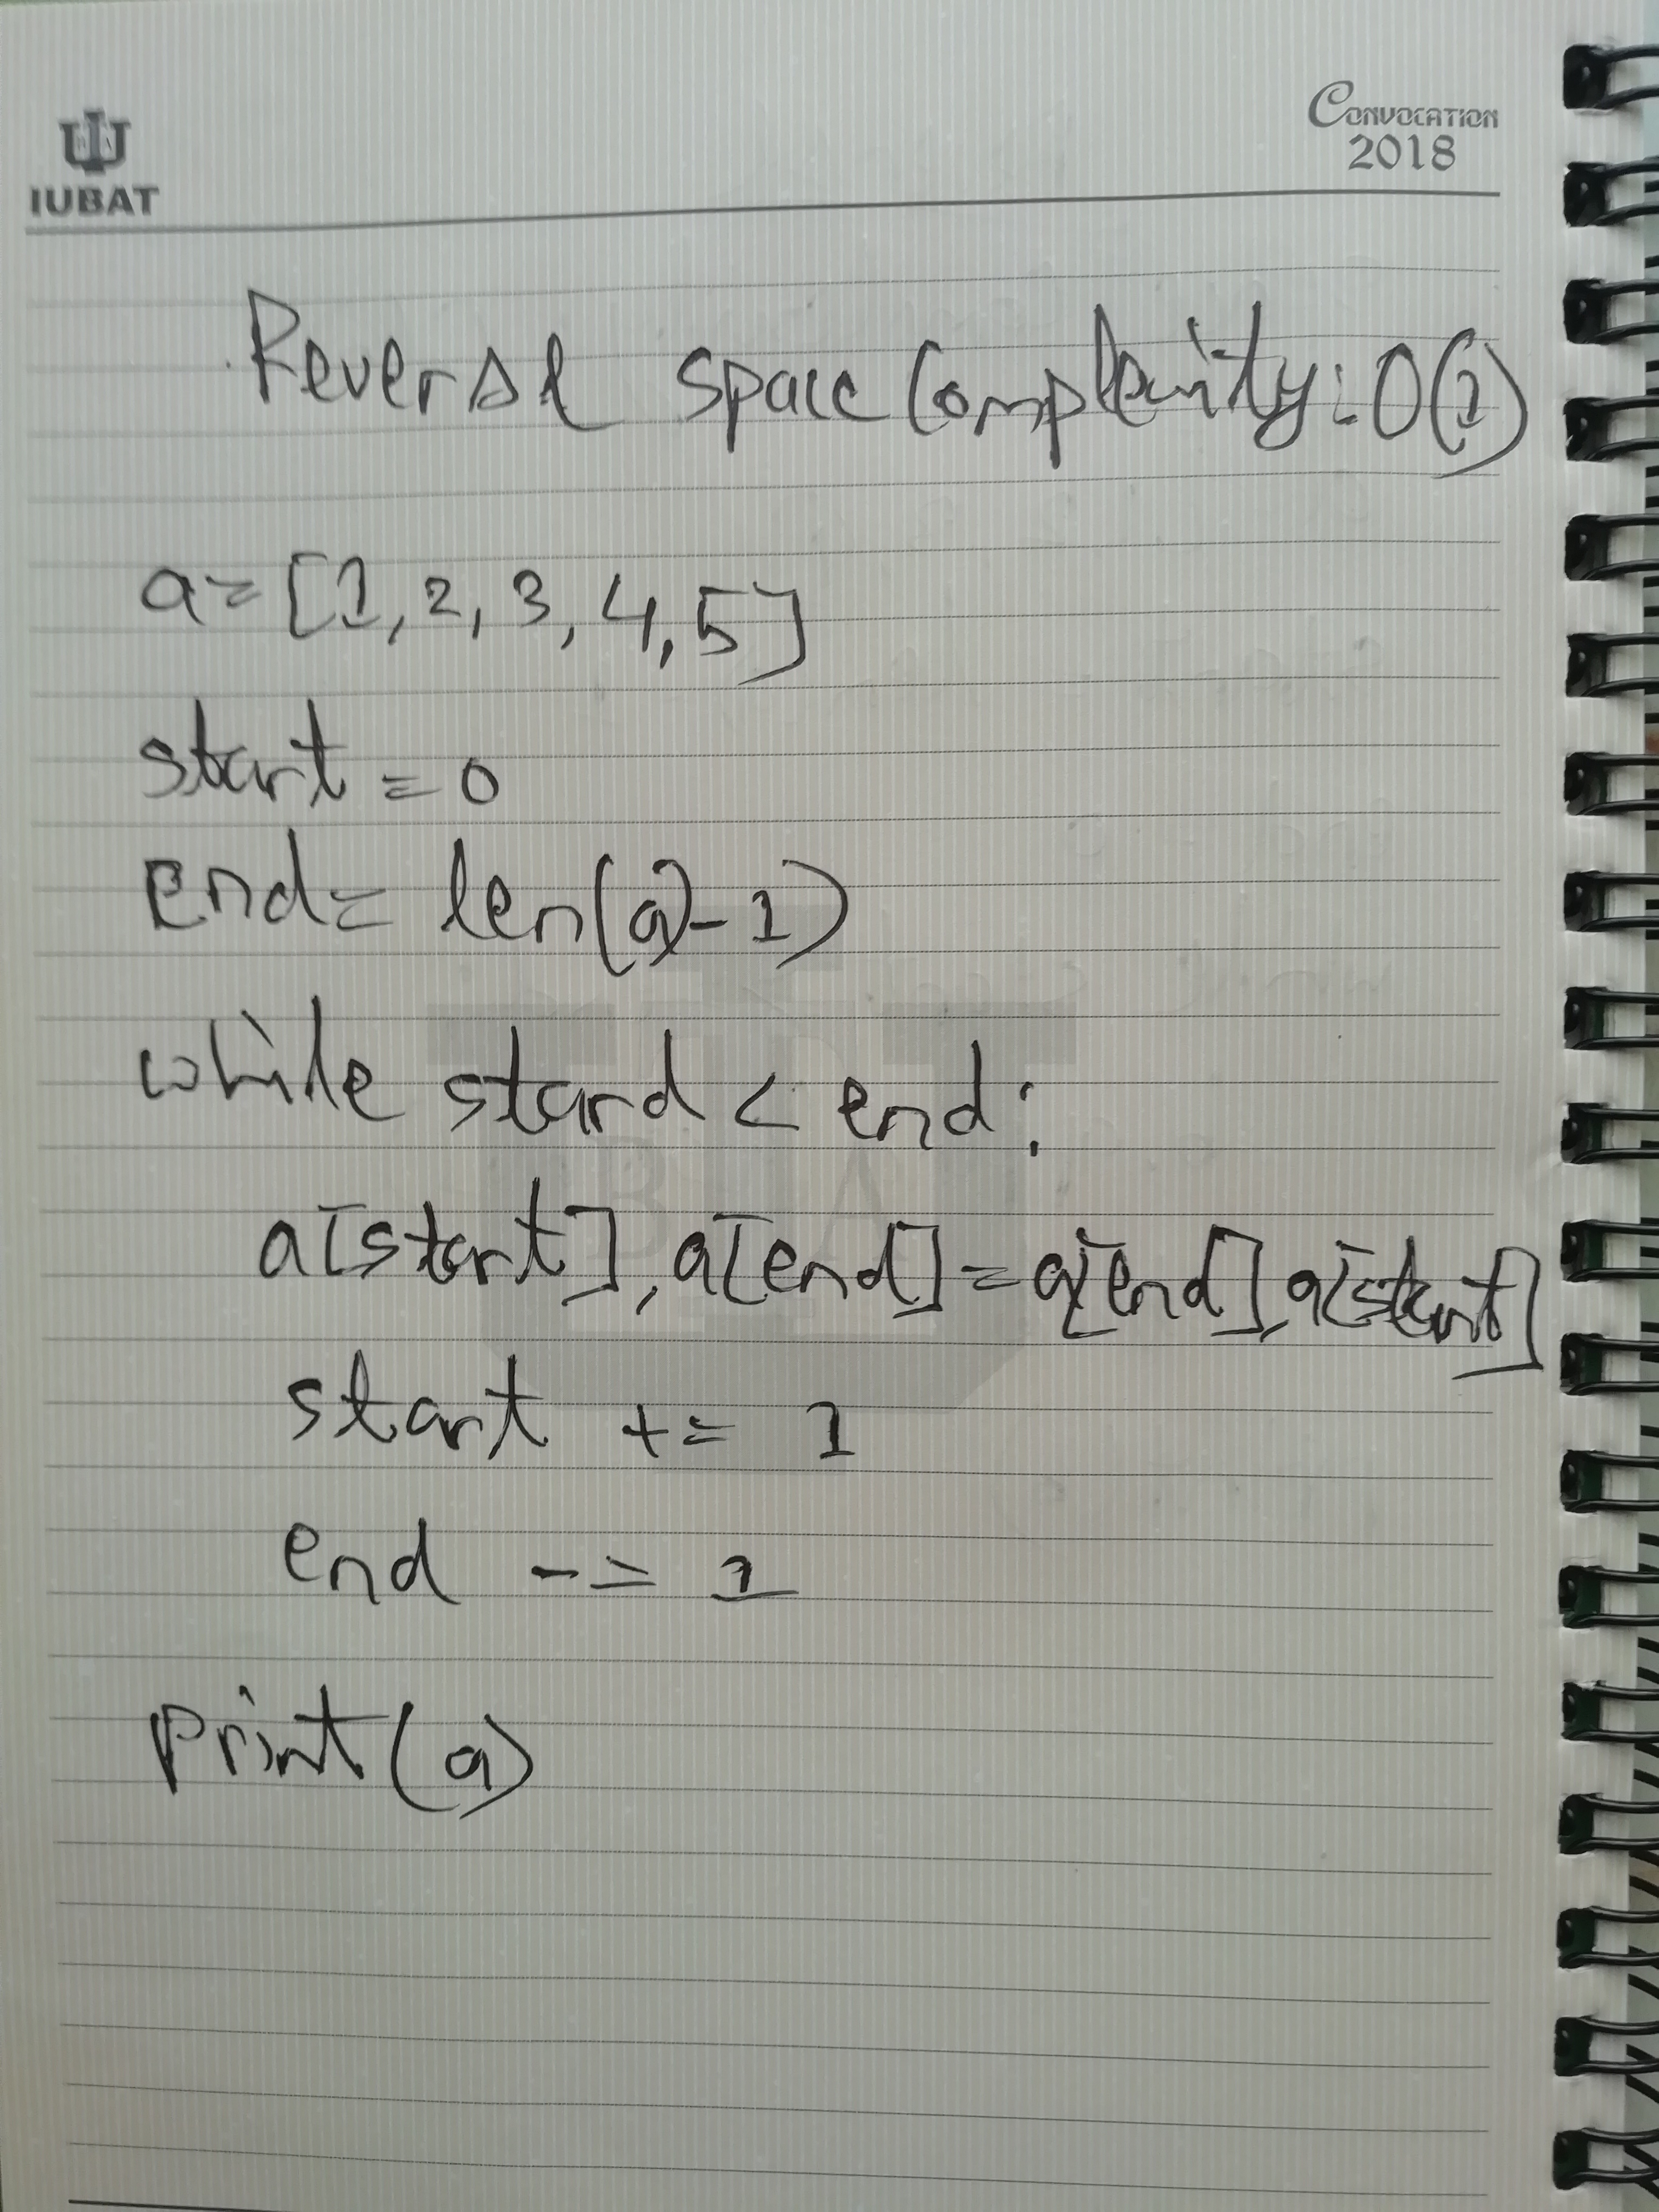 IUBAT
Convocation
2018
Reversal space Complexity: O(1)
a = [1, 2, 3, 4, 5]
start = 0
end = len(a)-1)
while stard < end:
a[start], a[end] = a[end], a[start]
start += 1
end -= 1
print(a)